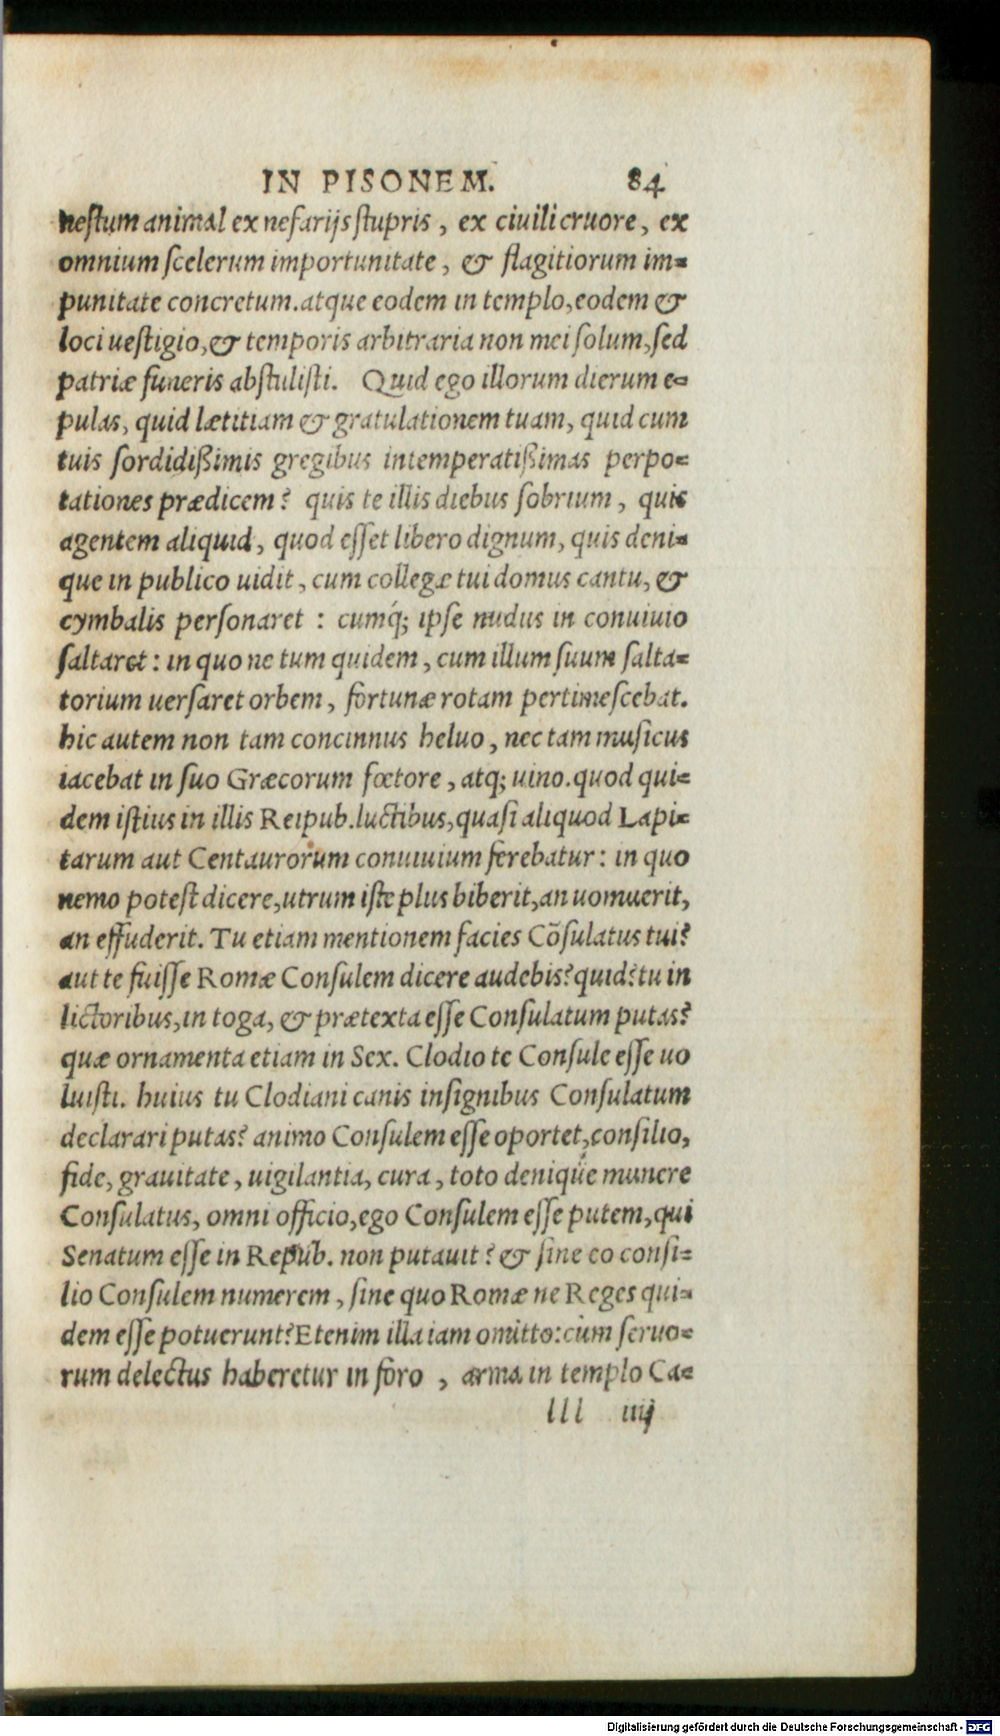 IN PISONEM. 84
neſtum animal ex nefarijs ſtupris, ex ciuili cruore, ex
omnium ſcelerum importunitate, & flagitiorum im-
punitate concretum. atque eodem in templo, eodem &
loci ueſtigio, & temporis arbitraria non mei ſolum, ſed
patriæ funeris abſtuliſti. Quid ego illorum dierum e-
pulas, quid lætitiam & gratulationem tuam, quid cum
tuis ſordidißimis gregibus intemperatißimas perpo-
tationes prædicem? quis te illis diebus ſobrium, quis
agentem aliquid, quod eſſet libero dignum, quis deni-
que in publico uidit, cum collegæ tui domus cantu, &
cymbalis perſonaret : cumq́; ipſe nudus in conuiuio
ſaltaret : in quo ne tum quidem, cum illum ſuum ſalta-
torium uerſaret orbem, fortunæ rotam pertimeſcebat.
hic autem non tam concinnus heluo, nec tam muſicus
iacebat in ſuo Græcorum fœtore, atq; uino. quod qui-
dem iſtius in illis Reipub. luctibus, quaſi aliquod Lapi-
tarum aut Centaurorum conuiuium ferebatur : in quo
nemo poteſt dicere, utrum iſte plus biberit, an uomuerit,
an effuderit. Tu etiam mentionem facies Cõſulatus tui?
aut te fuiſſe Romæ Conſulem dicere audebis? quid? tu in
lictoribus, in toga, & prætexta eſſe Conſulatum putas?
quæ ornamenta etiam in Sex. Clodio te Conſule eſſe uo
luiſti. huius tu Clodiani canis inſignibus Conſulatum
declarari putas? animo Conſulem eſſe oportet, conſilio,
fide, grauitate, uigilantia, cura, toto denique munere
Conſulatus, omni officio, ego Conſulem eſſe putem, qui
Senatum eſſe in Repub. non putauit? & ſine eo conſi-
lio Conſulem numerem, ſine quo Romæ ne Reges qui-
dem eſſe potuerunt? Etenim illa iam omitto: cùm ſeruo-
rum delectus haberetur in foro, arma in templo Ca-
lll iiij
Digitalisierung gefördert durch die Deutsche Forschungsgemeinschaft - DFG